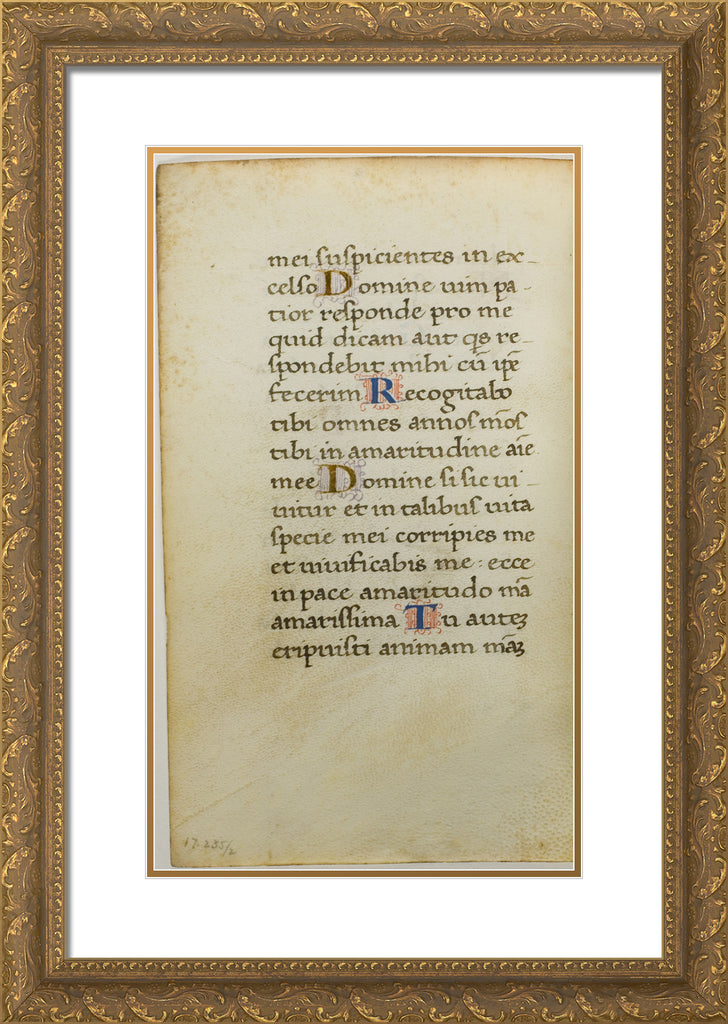 mei suspicientes in ex-
celso Domine uim pa-
tior responde pro me
quid dicam aut qͥs re-
spondebit mihi cū ip̄e
fecerim Recogitabo
tibi omnes annos mōs
tibi in amaritudine aīe
mee Domine si sic ui-
uitur et in talibus uita
specie mei corripies me
et uiuificabis me : ecce
in pace amaritudo mā
amarissima Tu auteʒ
eripuisti animam māʒ
17.235/2